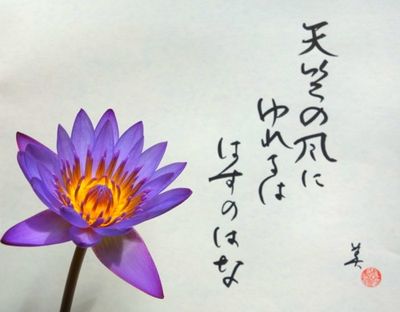 天竺の風に
ゆれるは
はすのはな
美